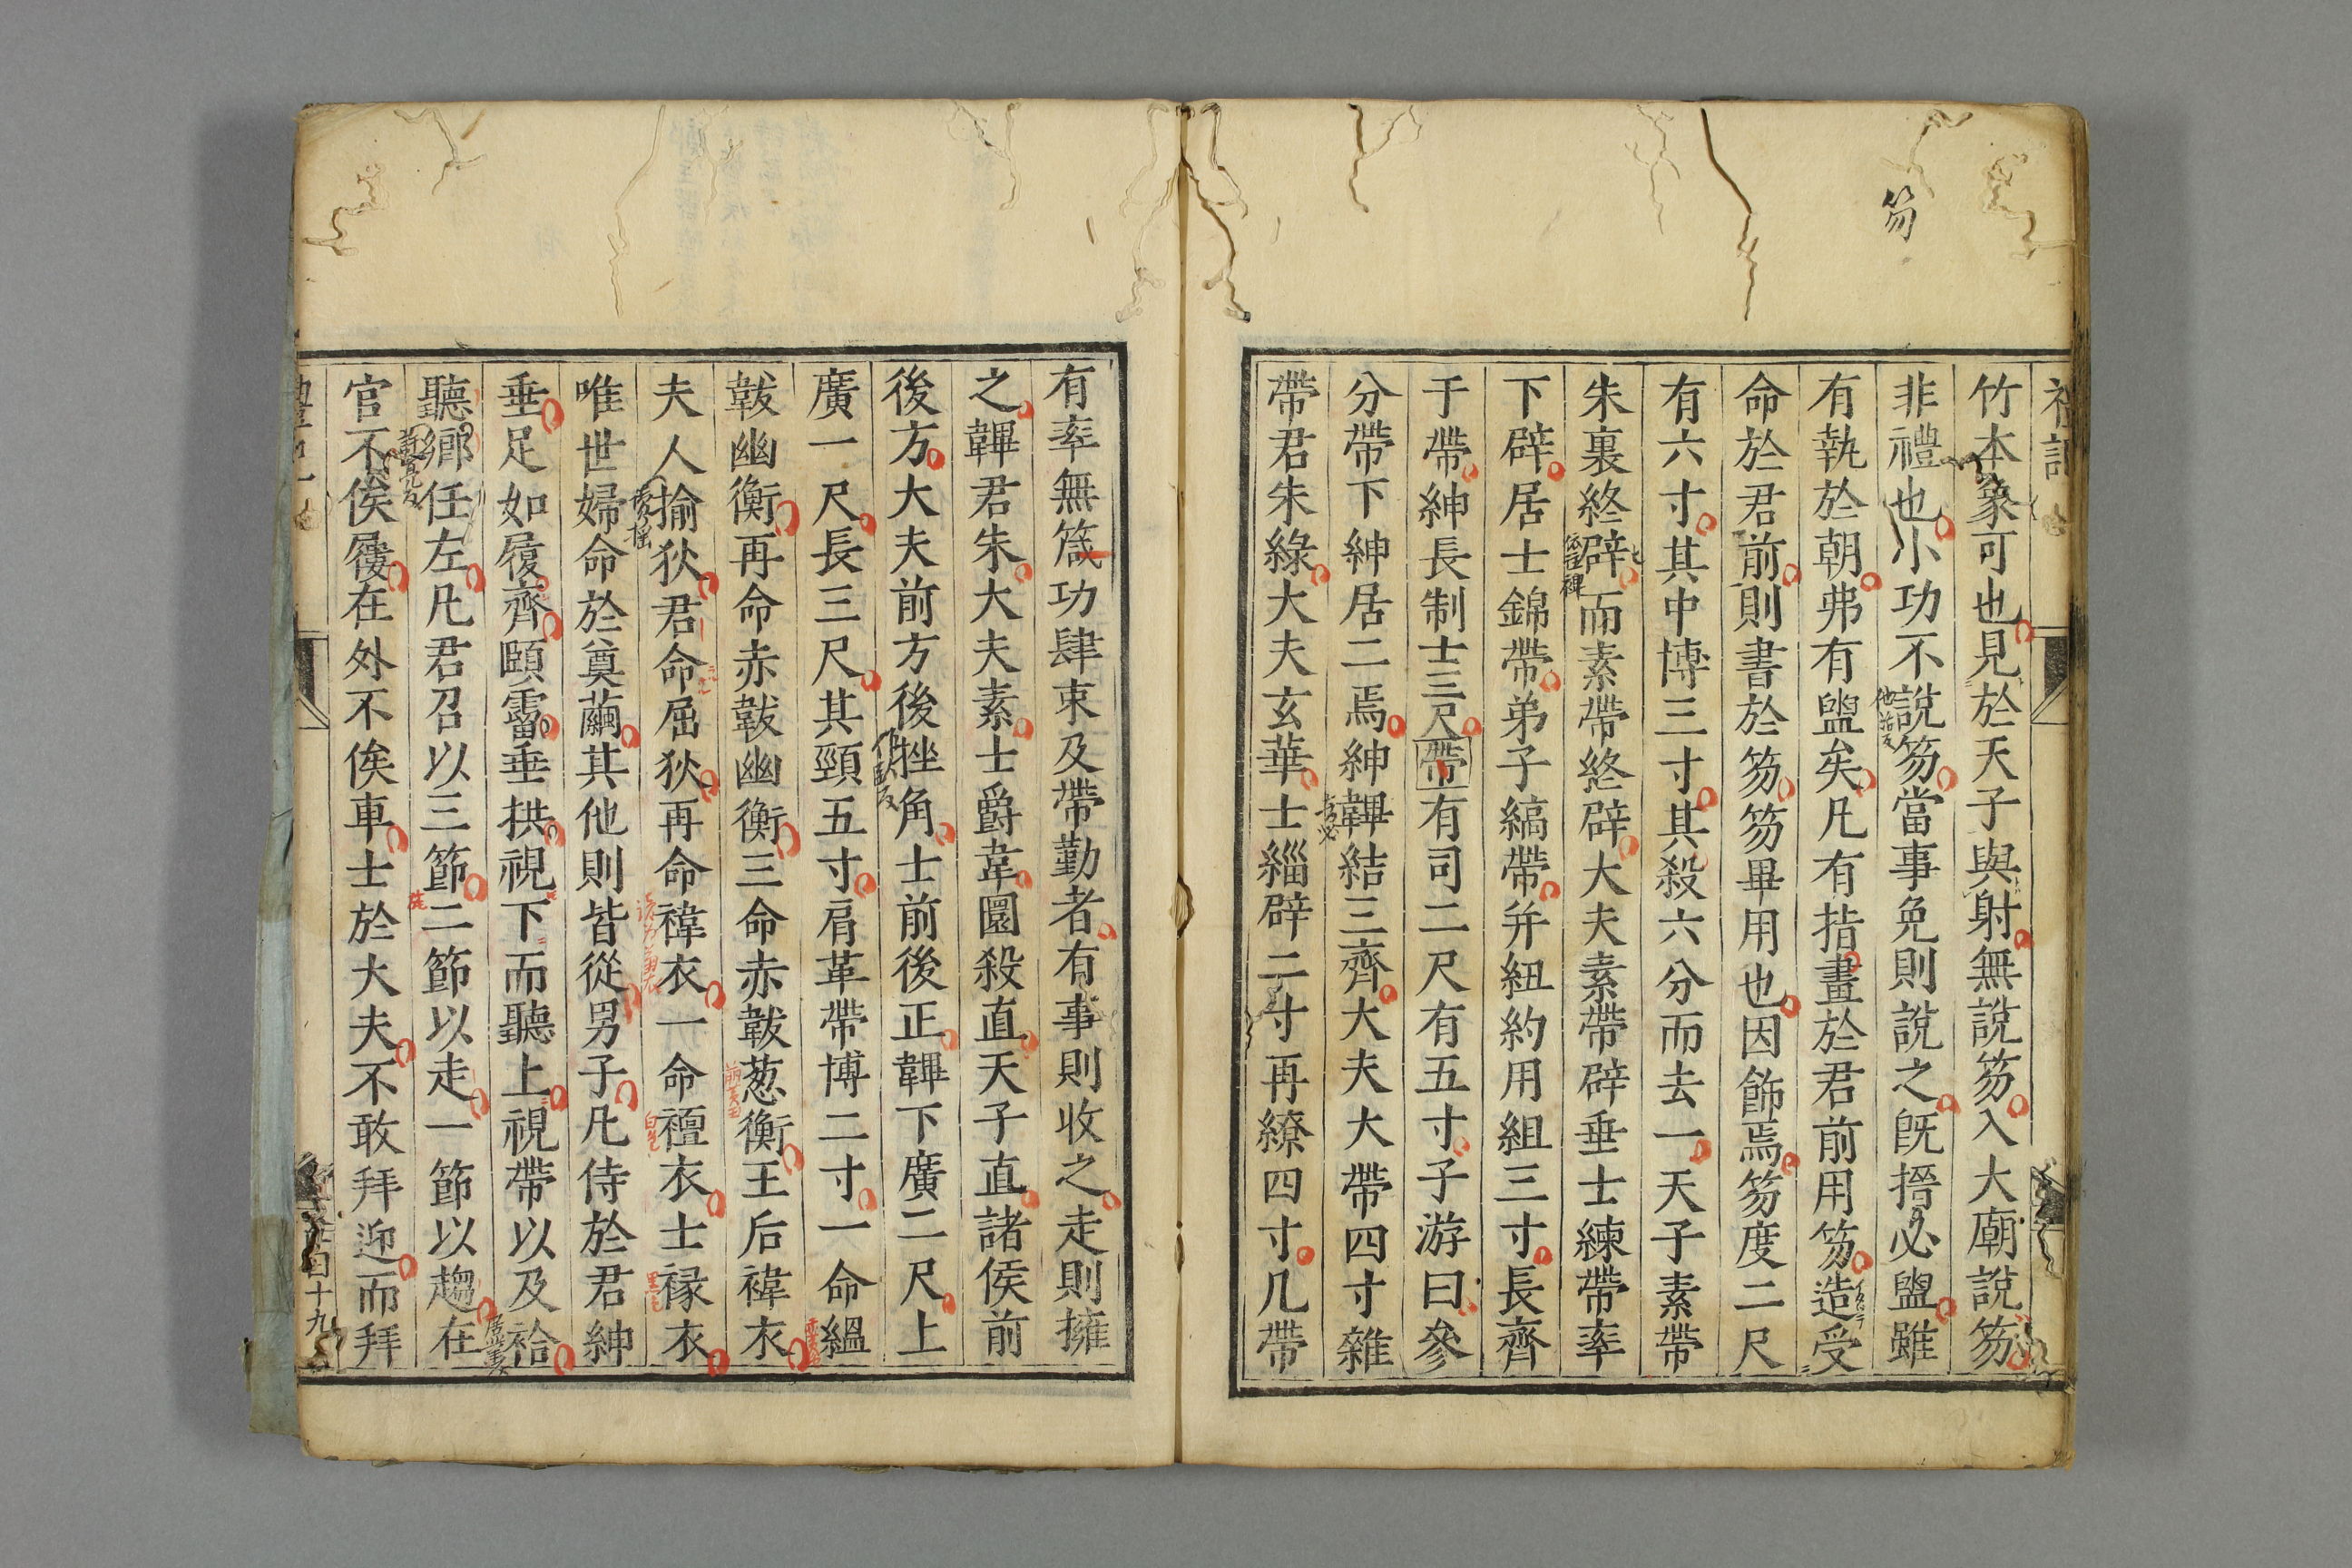 笏
竹本象可也見於天子與射無說笏入大廟說笏
非禮也小功不說笏當事免則說之旣搢必盥雖
有執於朝弗有盥矣凡有指畫於君前用笏造受
命於君前則書於笏笏畢用也因飾焉笏度二尺
有六寸其中博三寸其殺六分而去一天子素帶
朱裏終辟而素帶終辟大夫素帶辟垂士練帶率
下辟居士錦帶弟子縞帶并紐約用組三寸長齊
于帶紳長制士三尺帶有司二尺有五寸子游曰參
分帶下紳居二焉紳韠結三齊大夫大帶四寸雜
帶君朱綠大夫玄華士緇辟二寸再繚四寸凡帶
有率無箴功肆束及帶勤者有事則收之走則擁
之韠君朱大夫素士爵韋圜殺直天子直諸侯前
後方大夫前方後挫角士前後正韠下廣二尺上
廣一尺長三尺其頸五寸肩革帶博二寸一命縕
韍幽衡再命赤韍幽衡三命赤韍葱衡王后褘衣
夫人揄狄君命屈狄再命褘衣一命襢衣士褖衣
唯世婦命於奠繭其他則皆從男子凡侍於君紳
垂足如履齊頤霤垂拱視下而聽上視帶以及袷
聽鄉任左凡君召以三節二節以走一節以趨在
官不俟屨在外不俟車士於大夫不敢拜迎而拜